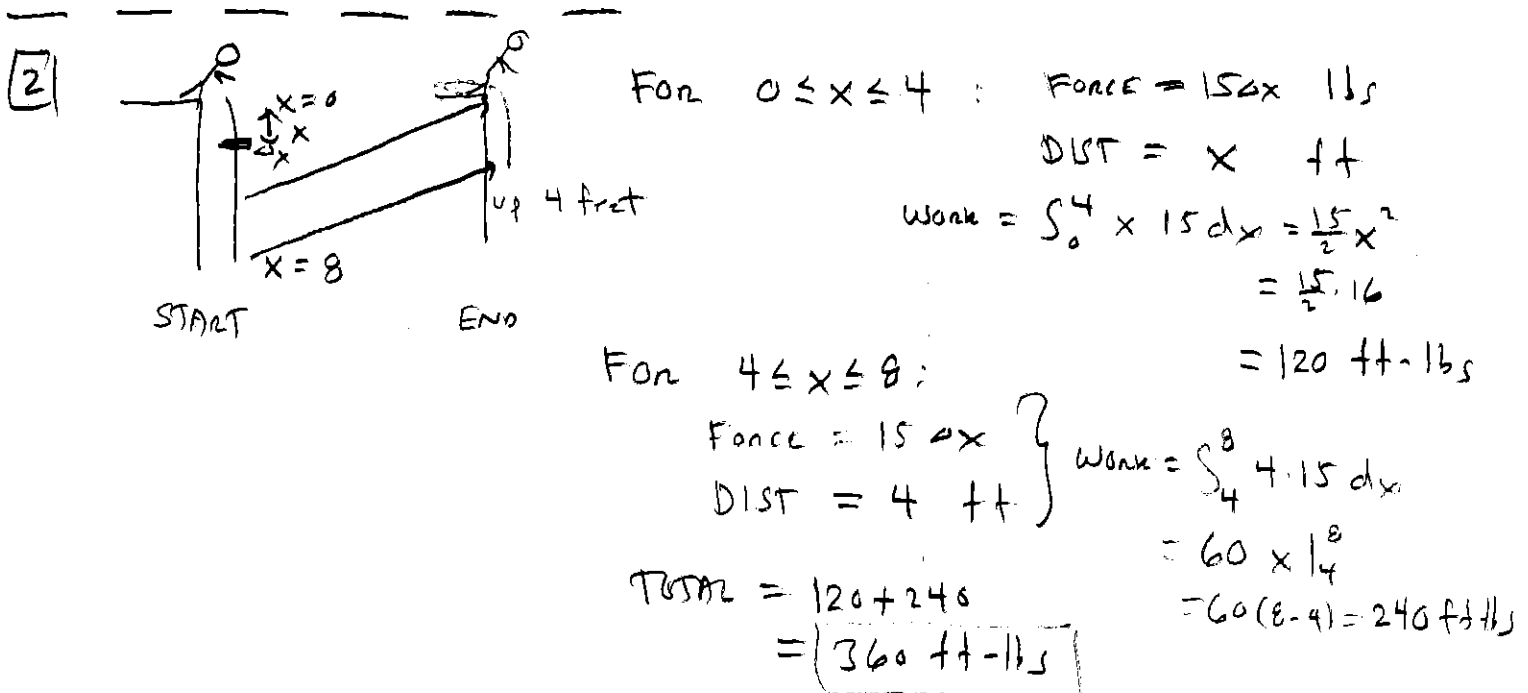 2
x=0
x
Δx
up 4 feet
x=8
START END
For 0 ≤ x ≤ 4 : FORCE = 15Δx lbs
DIST = x ft
Work = ∫₀⁴ x 15 dx = 15/2 x²
= 15/2 · 16
= 120 ft-lbs
For 4 ≤ x ≤ 8 :
Force = 15 Δx
DIST = 4 ft
Work = ∫₄⁸ 4·15 dx
= 60 x |₄⁸
= 60(8-4) = 240 ft-lbs
TOTAL = 120 + 240
= 360 ft-lbs